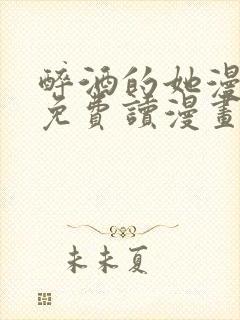 醉酒的她漫
免費讀漫畫
未未夏